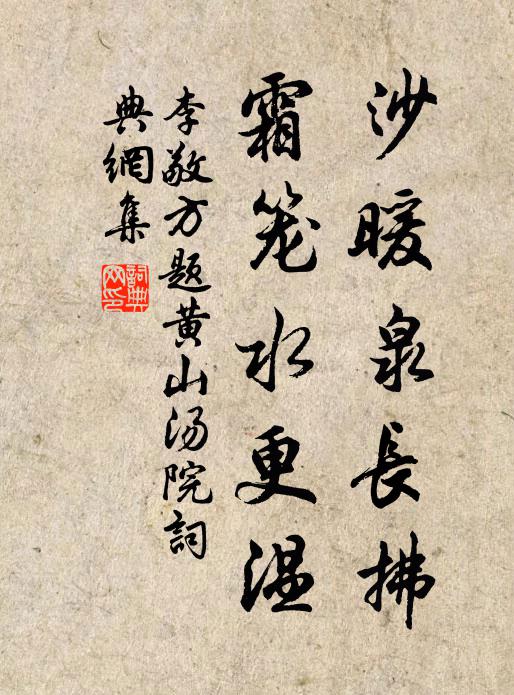 沙暖泉長拂
霜笼水更温
李敬方题黄山汤院詞
典網集
詞典
网印